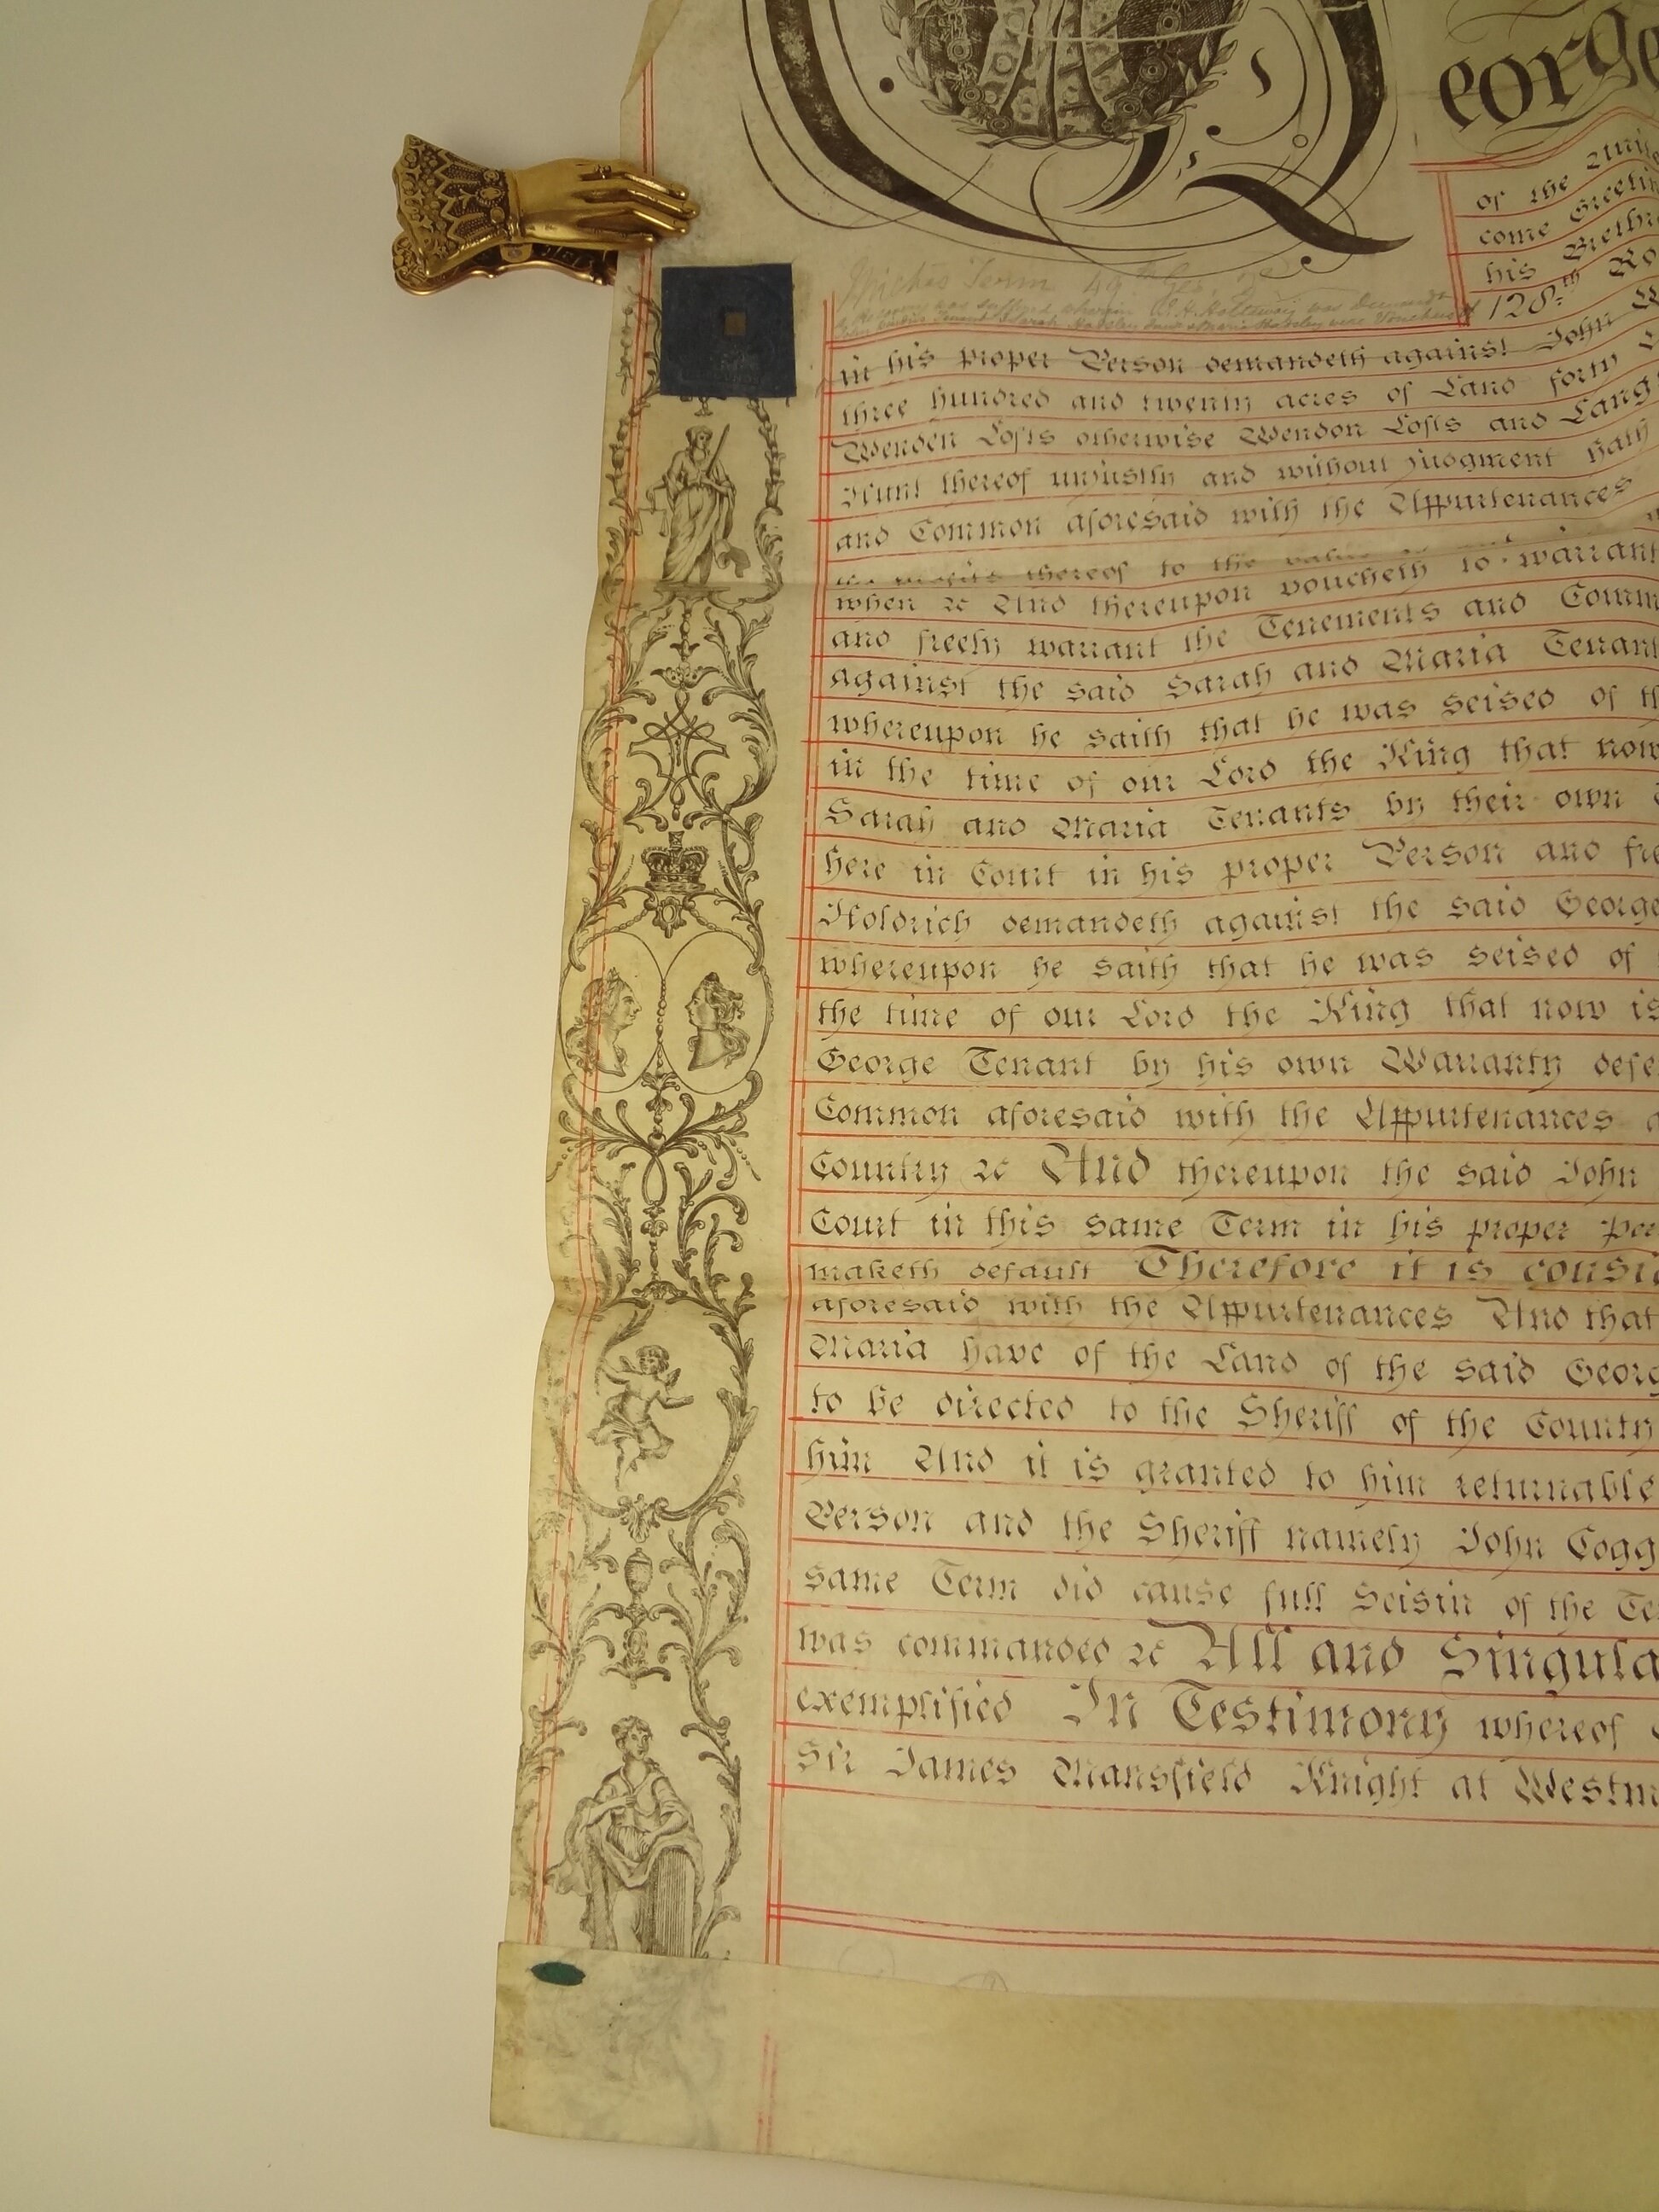 eorge
of the Unite
come Greetin
his Brethr
128th Ro
Michs Term 49th Geo. 3d
A Recovery was suffered wherein W. H. Holloway was Demandt
Sarah Maria were Vouchees
in his proper Person demandeth against John W
three hundred and twenty acres of Land forty
Wenden Lofts otherwise Wendon Lofts and Lang
Hunt thereof unjustly and without judgment hath
and Common aforesaid with the Appurtenances
the profits thereof to the value
when &c And thereupon voucheth to warrant
and freely warrant the Tenements and Comm
against the said Sarah and Maria Tenant
whereupon he saith that he was seised of th
in the time of our Lord the King that now
Sarah and Maria Tenants by their own
here in Court in his proper Person and fre
Holdrich demandeth against the said George
whereupon he saith that he was seised of
the time of our Lord the King that now is
George Tenant by his own Warranty defe
Common aforesaid with the Appurtenances a
Country &c And thereupon the said John
Court in this same Term in his proper per
maketh default Therefore it is consi
aforesaid with the Appurtenances And that
Maria have of the Land of the said Georg
to be directed to the Sheriff of the County
him And it is granted to him returnable
Person and the Sheriff namely John Cogg
same Term did cause full Seisin of the Te
was commanded &c All and Singula
exemplified In Testimony whereof
Sir James Mansfield Knight at Westm